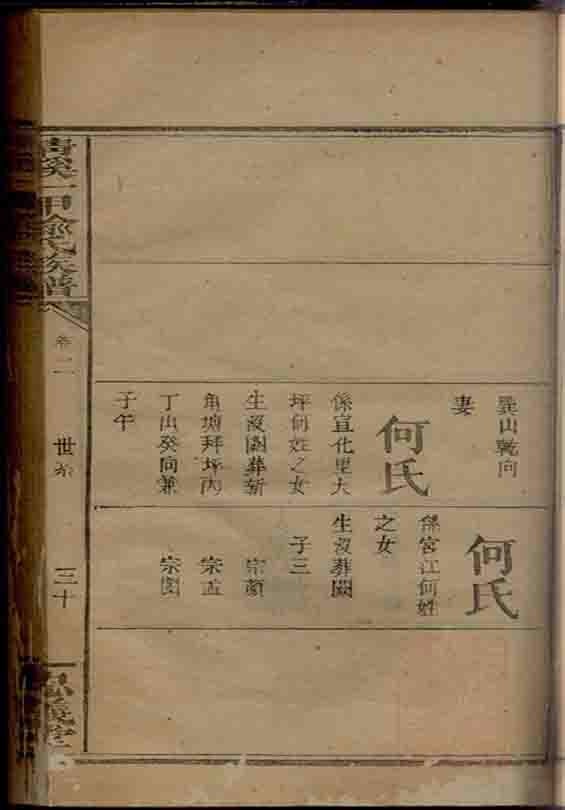 巽山乾向
妻
何氏
係宣化里大
坪何姓之女
生沒闕葬新
角塘拜坪丙
丁山癸向兼
子午
何氏
係官江何姓
之女
生沒葬闕
子三
宗顏
宗孟
宗閔
一甲俞氏族譜
卷二
世系
三十